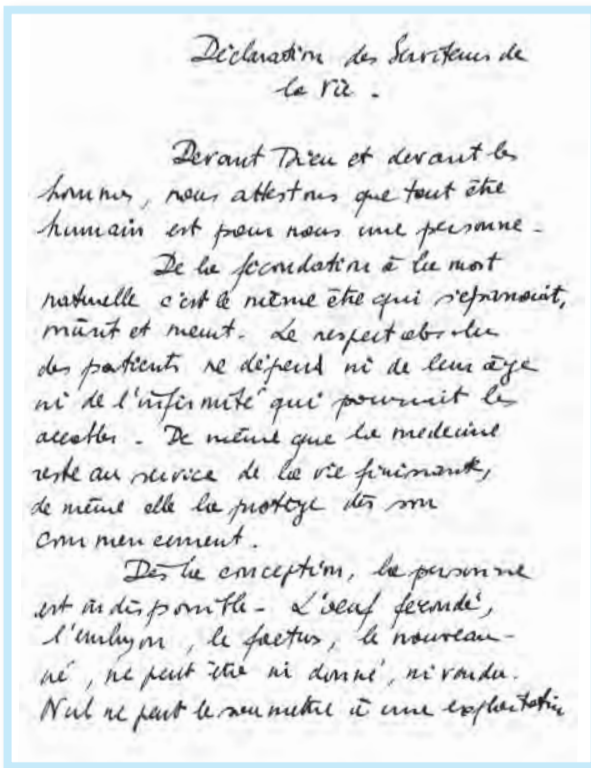 Déclaration des Serviteurs de
la Vie.
Devant Dieu et devant les
hommes, nous attestons que tout être
humain est pour nous une personne -
De la fécondation à la mort
naturelle c'est le même être qui s'épanouit,
mûrit et meurt. Le respect absolu
des patients ne dépend ni de leur âge
ni de l'infirmité qui pourrait les
accabler - De même que la médecine
reste au service de la vie finissante,
de même elle la protège dès son
commencement.
Dès la conception, la personne
est indisponible - L'oeuf fécondé,
l'embryon, le foetus, le nouveau-
né, ne peut être ni donné, ni vendu.
Nul ne peut le soumettre à une exploitation